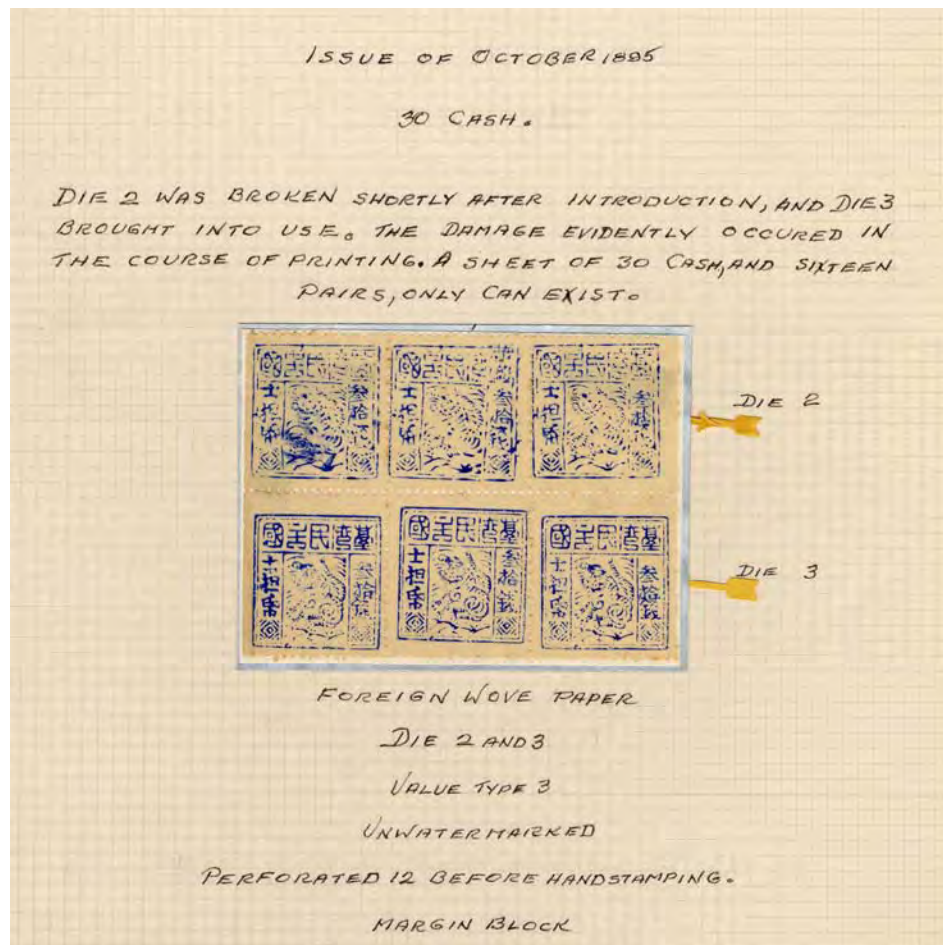 ISSUE OF OCTOBER 1895
30 CASH.
DIE 2 WAS BROKEN SHORTLY AFTER INTRODUCTION, AND DIE 3
BROUGHT INTO USE. THE DAMAGE EVIDENTLY OCCURED IN
THE COURSE OF PRINTING. A SHEET OF 30 CASH, AND SIXTEEN
PAIRS, ONLY CAN EXIST.
民主國
叁拾
士担帋
民主國
叁拾
士担帋
民主國
叁拾
士担帋
DIE 2
臺灣民主國
叁拾錢
士担帋
臺灣民主國
叁拾錢
士担帋
臺灣民主國
叁拾錢
士担帋
DIE 3
FOREIGN WOVE PAPER
DIE 2 AND 3
VALUE TYPE 3
UNWATERMARKED
PERFORATED 12 BEFORE HANDSTAMPING.
MARGIN BLOCK